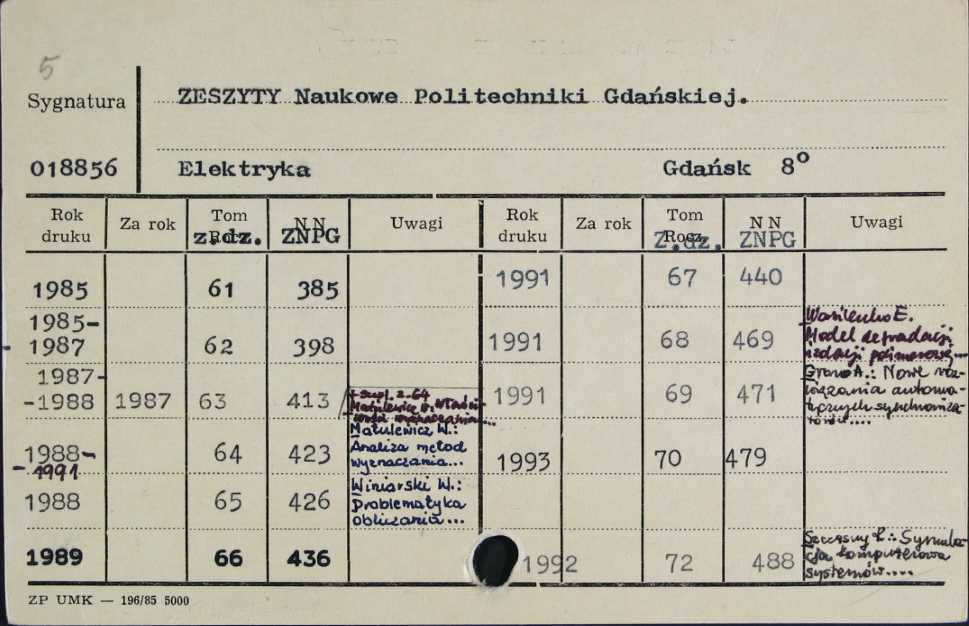 5
Sygnatura
ZESZYTY Naukowe Politechniki Gdańskiej.
018856 Elektryka Gdańsk 8°
Rok druku Za rok Tom Rocz. z.dz. NN ZNPG Uwagi Rok druku Za rok Tom Rocz. Z.dz. NN ZNPG Uwagi
1985 61 385 1991 67 440
1985-
1987 62 398 1991 68 469 Wasilenko E.
Model degradacji
izolacji polimerowej...
1987-
-1988 1987 63 413 + supl. z. 64
Matulewicz W.:
1991 69 471 Grono A.: Nowe roz-
wiązania automa-
tycznych synchroniza-
torów....
1988-
-1991 64 423 Matulewicz W.:
Analiza metod
wyznaczania...
1993 70 479
1988 65 426 Winiarski W.:
Problematyka
obliczania...
1989 66 436 1992 72 488 Szczęsny R.: Symula-
cja komputerowa
systemów....
ZP UMK — 196/85 5000